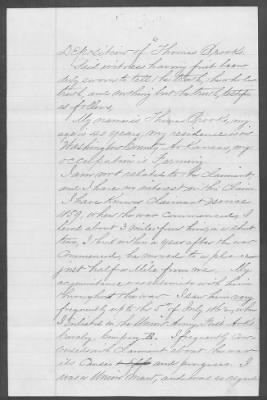 Deposition of Thomas Brooks
Said witness having first been
duly sworn to tell the truth, the whole
truth, and nothing but the truth, testifies
as follows
My name is Thomas Brooks, my
age is 40 years, my residence is in
Washington County Arkansas, my
occupation is Farming.
I am not related to the Claimant,
and I have no interest in the Claim
I have known Claimant since
1859, when the war commenced, I
lived about 3 miles from him a short
time, I but within a year after the war
commenced, he moved to a place
just half a Mile from me. My
acquaintance was intimate with him
throughout the war I saw him very
frequently up to the 5th of July 1862, when
I enlisted in the Union Army First Ark
Cavalry Company B. I frequently con
versed with Claimant about the war
its Causes and progress. I
was a Union Man, and was so regar